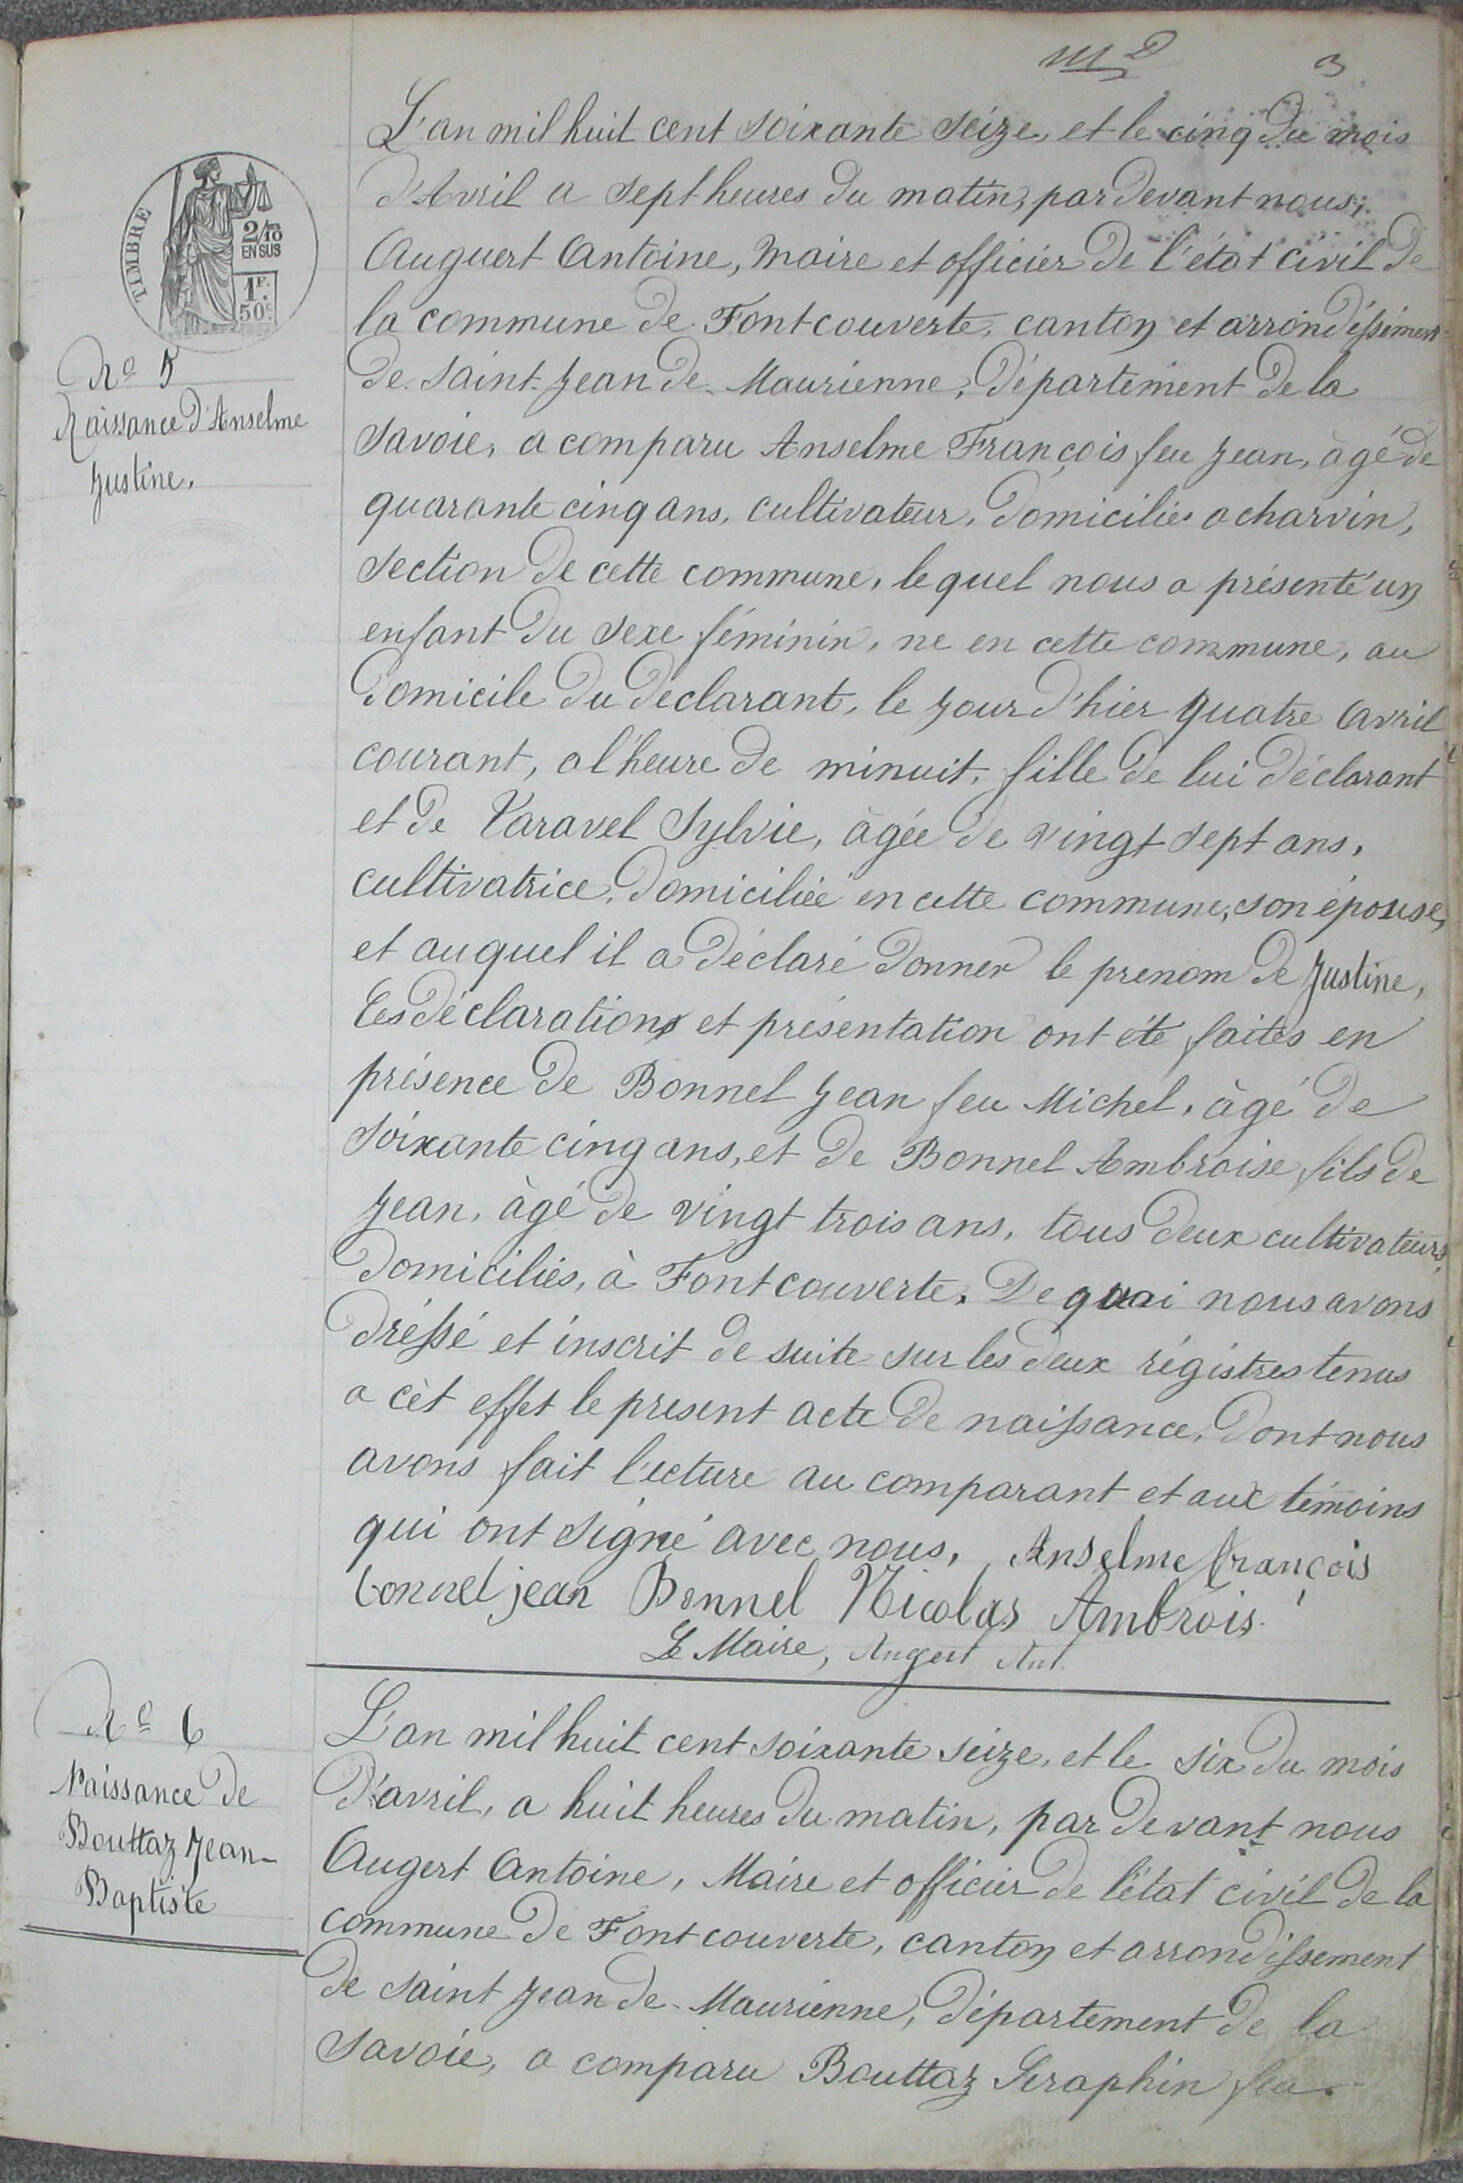 3
TIMBRE
2/10
EN SUS
1F.
50c.
No 5
Naissance d'Anselme
Justine.
L'an mil huit cent soixante seize, et le cinq du mois
d'Avril a sept heures du matin, par devant nous,
Auguert Antoine, Maire et officier de l'état civil de
la commune de Fontcouverte, canton et arrondissement
de Saint Jean de Maurienne, département de la
Savoie, a comparu Anselme François feu Jean, àgé de
quarante cinq ans, cultivateur, domicilié a charvin,
section de cette commune, lequel nous a présenté un
enfant du sexe féminin, ne en cette commune, au
domicile du declarant, le jour d'hier quatre Avril
courant, a l'heure de minuit, fille de lui déclarant
et de Varavel Sylvie, àgée de vingt sept ans,
cultivatrice, domiciliée en cette commune, son épouse,
et auquel il a déclaré donner le prenom de Justine,
Ces déclarations et présentation ont été faites en
présence de Bonnel Jean feu Michel, àgé de
soixante cinq ans, et de Bonnel Ambroise fils de
Jean, àgé de vingt trois ans, tous deux cultivateurs,
domiciliés, à Fontcouverte. De quoi nous avons
dréssé et inscrit de suite sur les deux régistres tenus
a cèt effet le present acte de naissance, dont nous
avons fait lecture au comparant et aux témoins
qui ont signé avec nous, Anselme françois
bonnel jean Bonnel Nicolas Ambrois.
Le Maire, Augert Ant.
No 6
Naissance de
Bouttaz Jean-
Baptiste
L'an mil huit cent soixante seize, et le six du mois
d'avril, a huit heures du matin, par devant nous
Augert Antoine, Maire et officier de l'état civil de la
commune de Fontcouverte, canton et arrondissement
de Saint Jean de Maurienne, département de la
Savoie, a comparu Bouttaz Seraphin feu